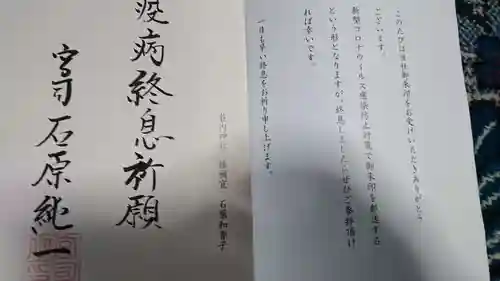 このたびは当社御朱印をお受けいただきありがとう
ございます。
新型コロナウィルス感染防止対策で御朱印を郵送する
という形となりますが、終息しましたらぜひご参拝頂け
れば幸いです。
一日も早い終息をお祈り申し上げます。
疫病終息祈願
宮司 石原純一